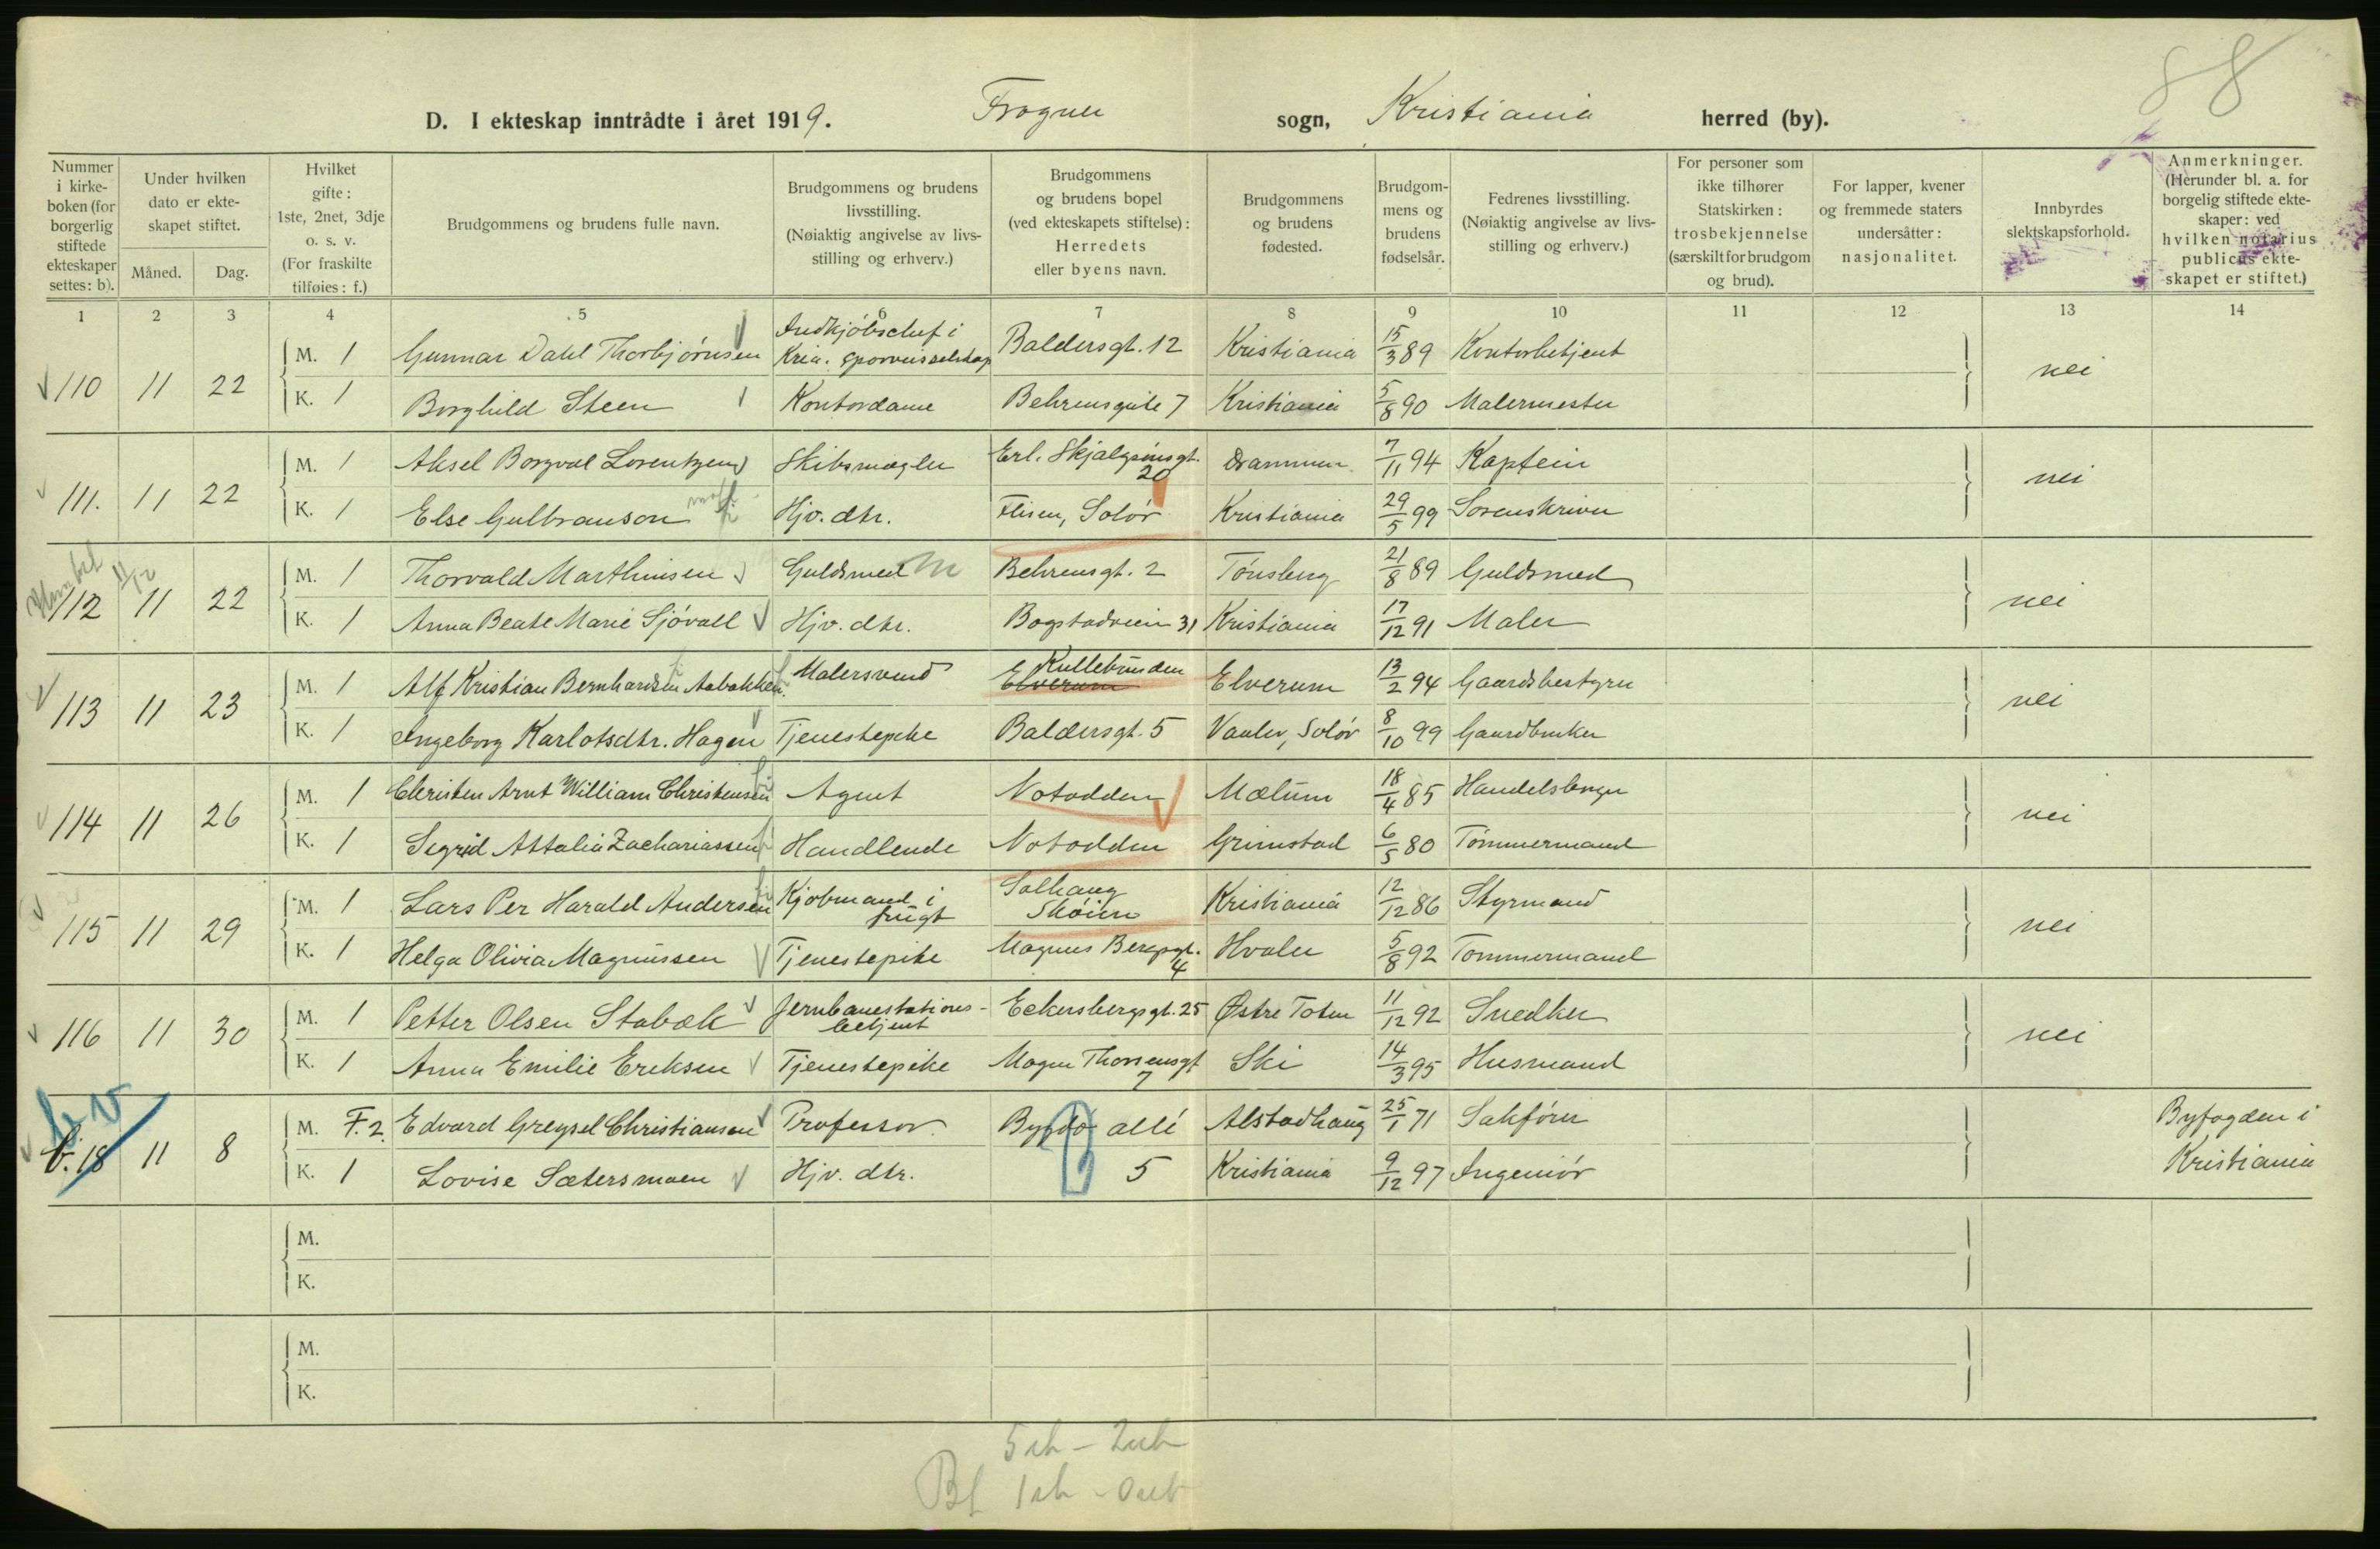 88
D. I ekteskap inntrådte i året 1919. Frogner sogn, Kristiania herred (by).
Nummer i kirkeboken (for borgerlig stiftede ekteskaper settes: b).
Under hvilken dato er ekteskapet stiftet.
Måned. Dag.
Hvilket gifte: 1ste, 2net, 3dje o. s. v. (For fraskilte tilføies: f.)
Brudgommens og brudens fulle navn.
Brudgommens og brudens livsstilling. (Nøiaktig angivelse av livsstilling og erhverv.)
Brudgommens og brudens bopel (ved ekteskapets stiftelse): Herredets eller byens navn.
Brudgommens og brudens fødested.
Brudgommens og brudens fødselsår.
Fedrenes livsstilling. (Nøiaktig angivelse av livsstilling og erhverv.)
For personer som ikke tilhører Statskirken: trosbekjennelse (særskilt for brudgom og brud).
For lapper, kvener og fremmede staters undersåtter: nasjonalitet.
Innbyrdes slektskapsforhold.
Anmerkninger. (Herunder bl. a. for borgelig stiftede ekteskaper: ved hvilken notarius publicus ekteskapet er stiftet.)
1 2 3 4 5 6 7 8 9 10 11 12 13 14
110 11 22
M. 1 Gunnar Dahl Thorbjørnsen Indkjøbschef i Kria. sporveisselskap Baldersgt. 12 Kristiania 15/3 89 Kontorbetjent nei
K. 1 Borghild Steen Kontordame Behrensgate 7 Kristiania 5/8 90 Malermester
111. 11 22
M. 1 Aksel Borgval Lorentzen Skibsmægler Erl. Skjalgsønsgt. 20 Drammen 7/11 94 Kaptein nei
K. 1 Else Gulbranson Hjv. dtr. Flisen, Solør Kristiania 29/5 99 Sorenskriver
112 11 22
M. 1 Thorvald Marthinsen Guldsmed Behrensgt. 2 Tønsberg 21/8 89 Guldsmed nei
K. 1 Anna Beate Marie Sjøvall Hjv. dtr. Bogstadveien 31 Kristiania 17/12 91 Maler
113 11 23
M. 1 Alf Kristian Bernhardsen Aabakken Malersvend Elverum Elverum 13/2 94 Gaardsbestyrer nei
K. 1 Ingeborg Karlotsdtr. Hagen Tjenestepike Baldersgt. 5 Vaaler, Solør 8/10 99 Gaardbruker
114 11 26
M. 1 Christen Arnt William Christensen Agent Notodden Mælum 18/4 85 Handelsborger nei
K. 1 Sigrid Attalia Zachariassen Handlende Notodden Grimstad 6/5 80 Tømmermand
115 11 29
M. 1 Lars Per Harald Andersen Kjøbmand i frugt Solhaug Skøien Kristiania 12/12 86 Styrmand nei
K. 1 Helga Olivia Magnussen Tjenestepike Magnus Bergsgt. 4 Hvaler 5/8 92 Tømmermand
116 11 30
M. 1 Petter Olsen Stabæk Jernbanestationsbetjent Eckersbergsgt. 25 Østre Toten 11/12 92 Snedker nei
K. 1 Anna Emilie Eriksen Tjenestepike Mogen Thorsensgt 7 Ski 14/3 95 Husmand
b. 18 11 8
M. F. 2. Edvard Greysel Christiansen Professor Bygdø allé 5 Alstadhaug 25/1 71 Sakfører Byfogden i Kristiania
K. 1 Lovise Sætersmoen Hjv. dtr. Kristiania 9/12 97 Ingeniør
M.
K.
M.
K.